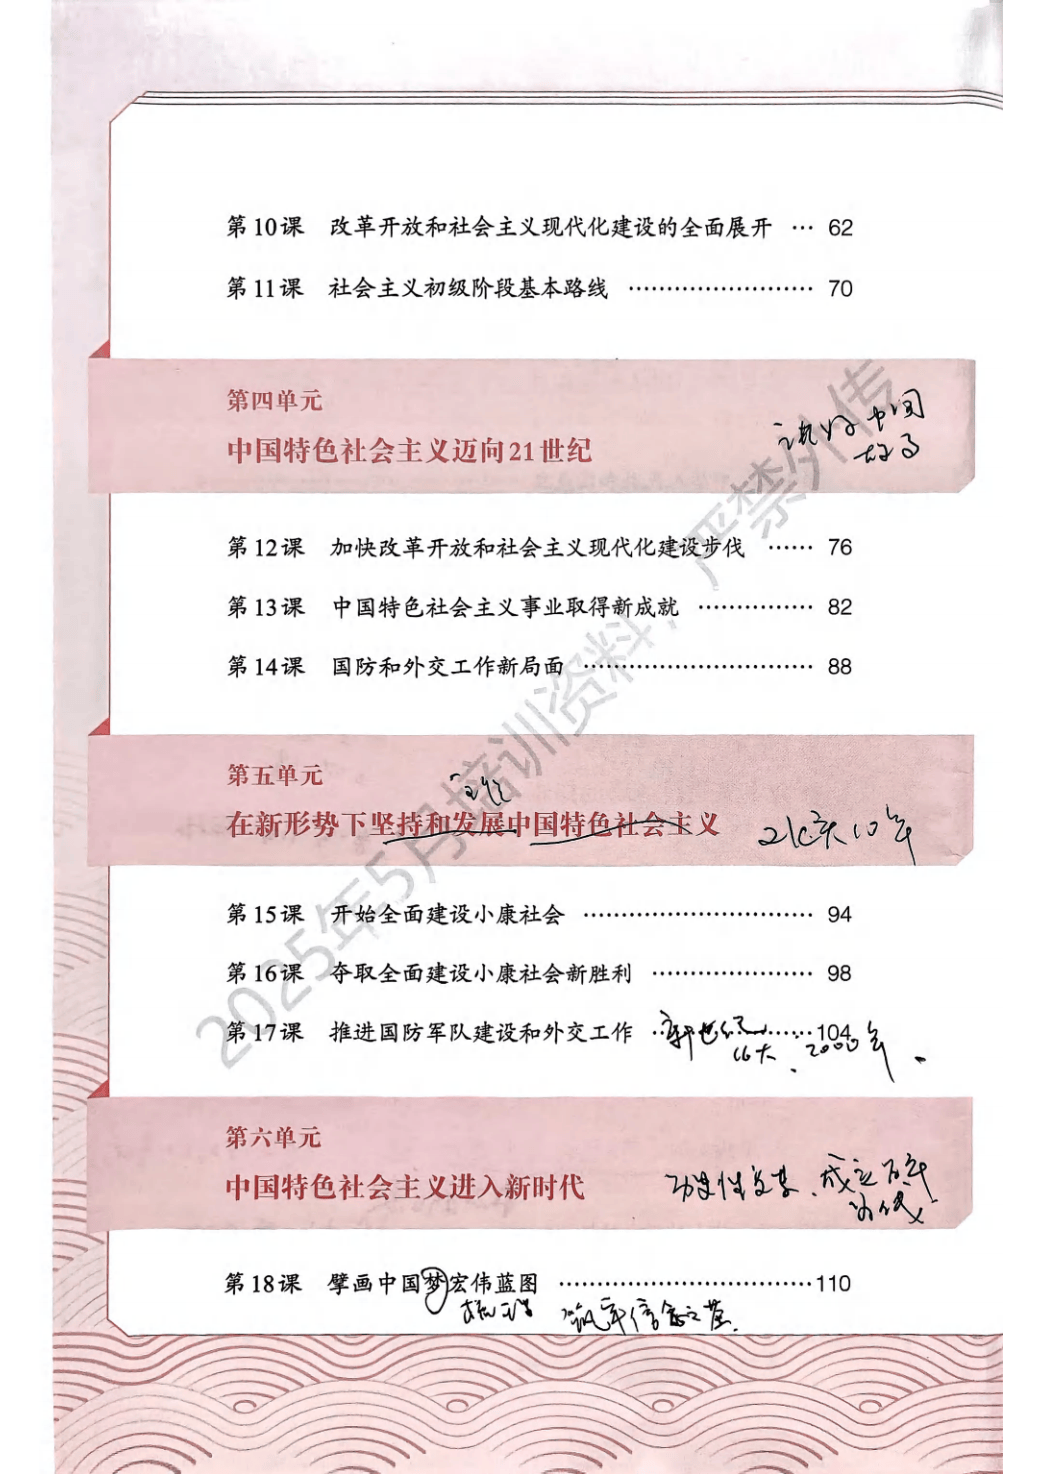 第10课 改革开放和社会主义现代化建设的全面展开 … 62
第11课 社会主义初级阶段基本路线 …………………… 70
第四单元
中国特色社会主义迈向21世纪
讲好中国
故事
第12课 加快改革开放和社会主义现代化建设步伐 …… 76
第13课 中国特色社会主义事业取得新成就 …………… 82
第14课 国防和外交工作新局面 ………………………… 88
第五单元
在新形势下坚持和发展中国特色社会主义
10年
第15课 开始全面建设小康社会 ………………………… 94
第16课 夺取全面建设小康社会新胜利 ………………… 98
第17课 推进国防军队建设和外交工作 ………………… 104
新世纪
16大、2000年
第六单元
中国特色社会主义进入新时代
历史性变革、成立百年
第18课 擘画中国梦宏伟蓝图 ……………………………110
筑牢信念之基
2025年5月培训资料，严禁外传